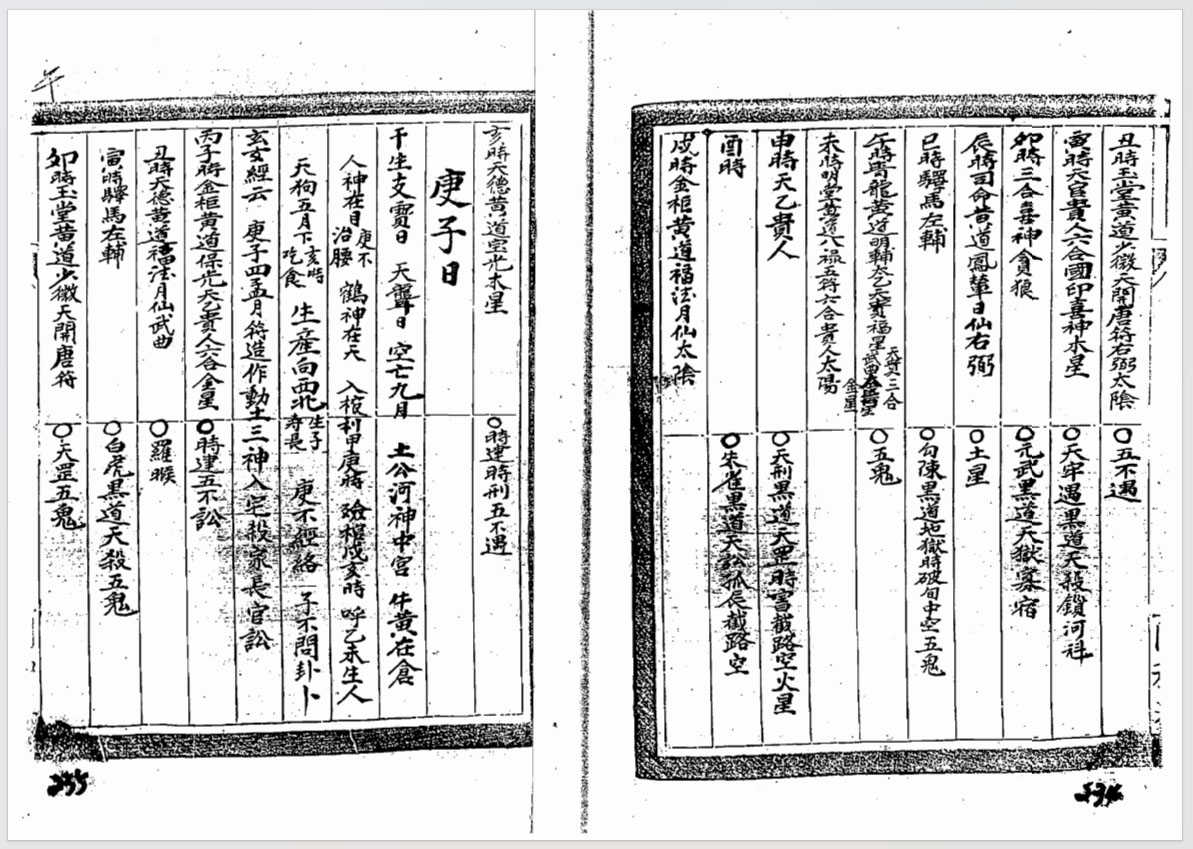 丑時玉堂黃道少微天開唐符右弼太陰
〇五不遇
寅時天官貴人六合國印喜神木星
〇天牢遇黑道天殺鎖河科
卯時三合喜神貪狼
〇元武黑道天獄寡宿
辰時司命黃道鳳輦日仙右弼
〇土星
巳時驛馬左輔
〇勾陳黑道地獄時破旬中空五鬼
午時青龍黃道明輔太乙天貴福星
天貴三合
〇五鬼
未時明堂黃道八祿五符六合貴人太陽
金星
申時天乙貴人
〇天刑黑道天罡時害截路空火星
酉時
〇朱雀黑道天訟孤辰截路空
戌時金柜黃道福法月仙太陰
亥時天德黃道寶光木星
〇時建時刑五不遇
庚子日
干生支寶日 天聾日 空亡九月 土公河神中宮 牛黃在倉
人神在目 庚不治腰 鶴神在天 入棺利甲庚時 殮棺戌亥時 呼乙未生人
天狗五月下亥時吃食 生產向西北 生子壽長 庚不經絡 子不問卦卜
玄女經云 庚子四孟月符造作動土三神入宅殺家長官訟
丙子時金柜黃道保光天乙貴人六合金星
〇時建五不訟
丑時天德黃道福法月仙武曲
〇羅睺
寅時驛馬左輔
〇白虎黑道天殺五鬼
卯時玉堂黃道少微天開唐符
〇天罡五鬼
午
255